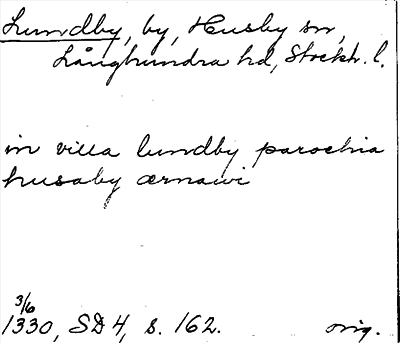 Lundby, by, Husby sn,
Långhundra hd, Stockh. l.
in villa lundby parochia
husaby ærnawi
3/6
1330, SD 4, s. 162. orig.